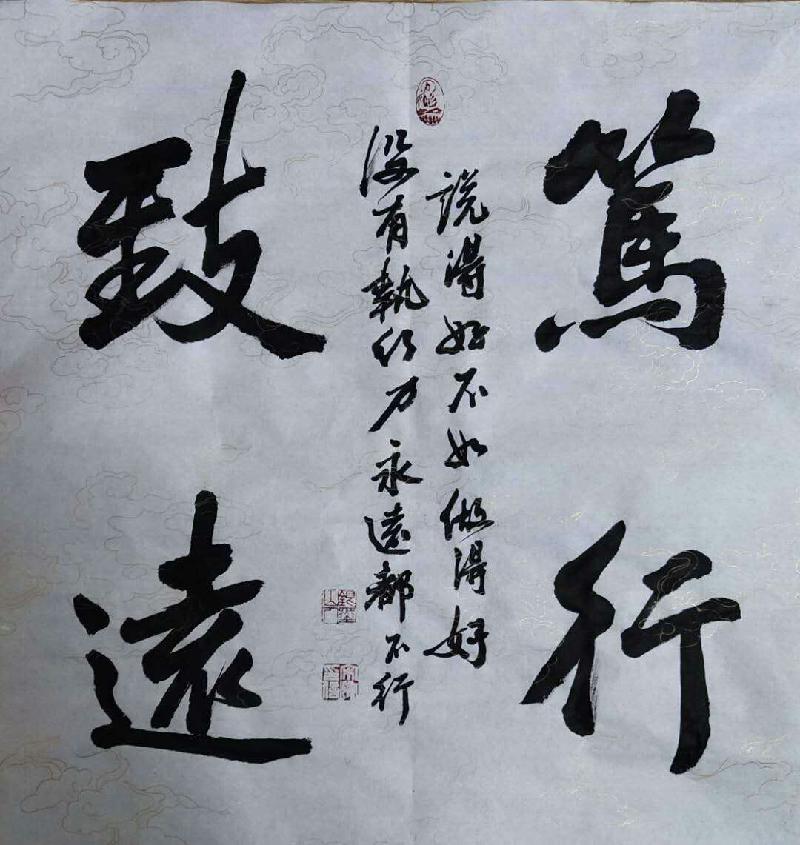 篤行
説得好不如做得好
没有執行力永遠都不行
致遠